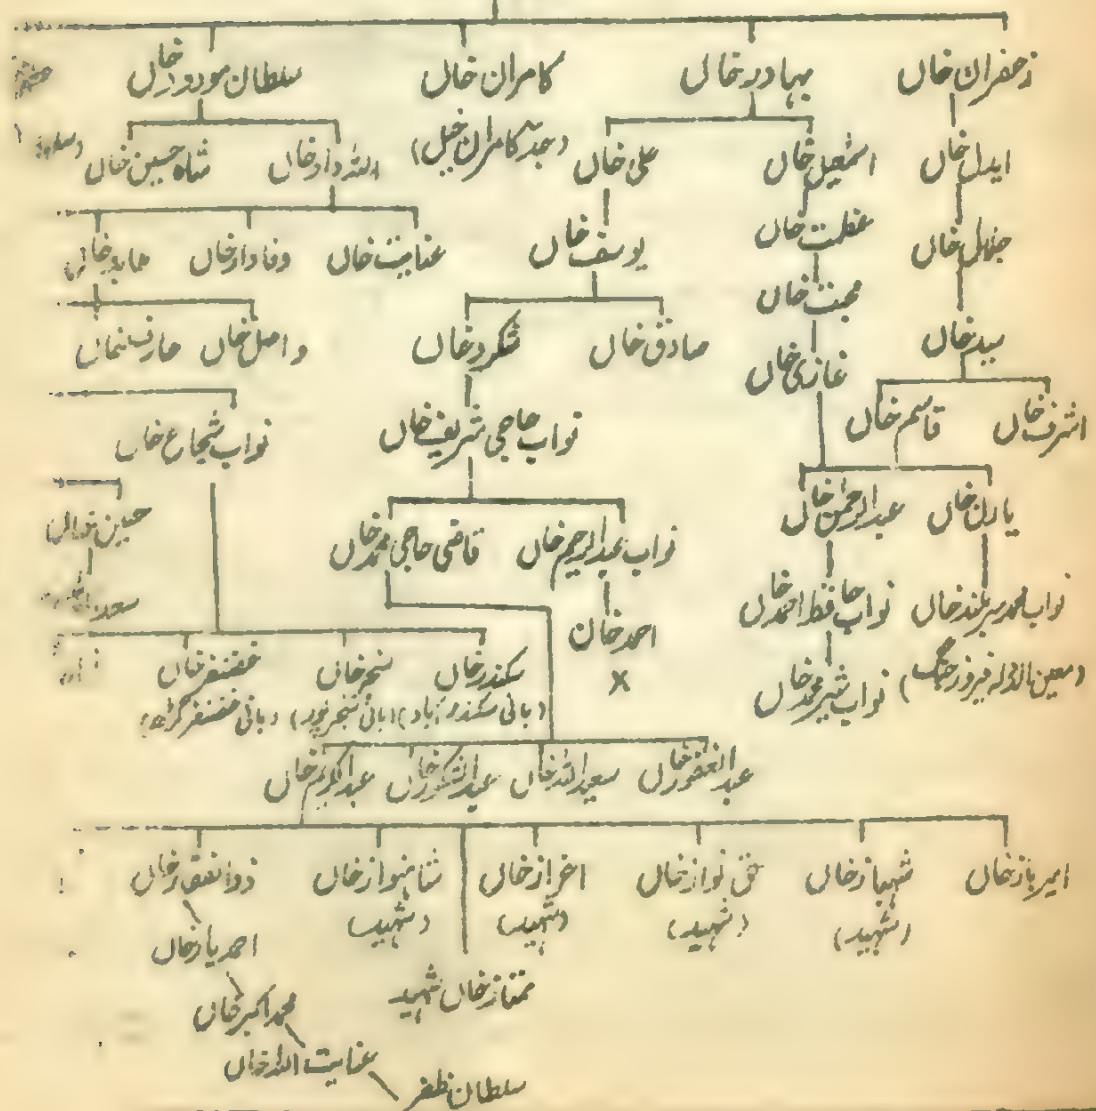 زعفران خاں بہادر خاں کامران خاں سلطان مودود خاں
(جد کامران خیل)
ایدل خاں اسمٰعیل خاں علی خاں اللہ داد خاں شاہ حسین خاں
جنہل خاں عظمت خاں یوسف خاں عنایت خاں وفادار خاں عابد خاں
محبت خاں
سید خاں غازی خاں صادق خاں شکرد خاں واصل خاں عارف خاں
اشرف خاں قاسم خاں نواب حاجی شریف خاں نواب شجاع خاں
یارن خاں عبدالرحمن خاں نواب عبدالرحیم خاں قاضی حاجی محمد خاں حسین خاں
نواب محمد سربلند خاں نواب حافظ احمد خاں احمد خان
(معین الدولہ فیروز جنگ) نواب شیر محمد خاں x
سکندر خاں سنجر خاں غضنفر خاں
(بانی سکندر آباد) (بانی سنجر پور) (بانی غضنفر گڑھ)
عبدالغفور خاں سعید اللہ خاں عبدالشکور خاں عبدالکریم خاں
امیر باز خاں شہباز خاں حق نواز خاں شاہنواز خاں ذوالفقار خاں
(شہید) (شہید) (شہید) (شہید)
احمد یار خاں
ممتاز خاں شہید
محمد اکبر خاں
عنایت اللہ خاں
سلطان ظفر